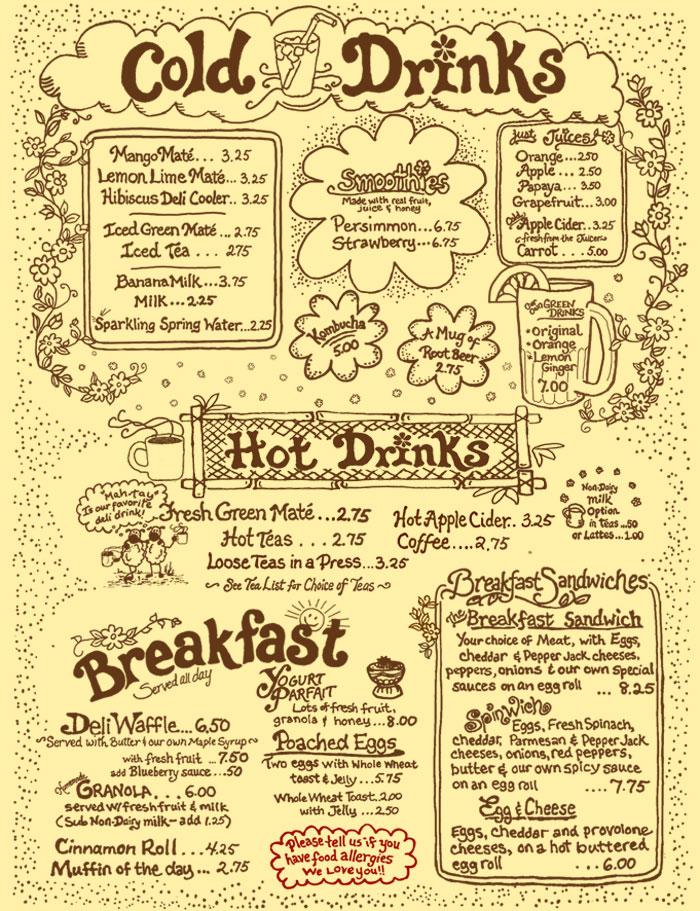 Cold Drinks
Mango Maté... 3.25
Lemon Lime Maté... 3.25
Hibiscus Deli Cooler.. 3.25
Iced Green Maté... 2.75
Iced Tea . . . 275
Banana Milk...3.75
Milk...2.25
Sparkling Spring Water...2.25
Smoothies
Made with real fruit,
juice & honey
Persimmon...6.75
Strawberry...6.75
Just Juices!
Orange...2.50
Apple... 2.50
Papaya... 3.50
Grapefruit...3.00
Apple Cider..3.25
fresh from the Juicer
Carrot . . 5.00
Kombucha
5.00
A Mug of
Root Beer
2.75
GREEN
DRINKS
• Original
Orange
• Lemon
Ginger
7.00
Hot Drinks
Mah-tay
Is our favorite
deli drink!
Fresh Green Maté...2.75
Hot Teas . . . 2.75
Loose Teas in a Press...3.25
~ See Tea List for Choice of Teas ~
Hot Apple Cider.. 3.25
Coffee....2.75
Non-Dairy
milk
Option
in Teas ..50
or Lattes...1.00
Breakfast
Served all day
Deli Waffle... 6.50
~Served with Butter & our own Maple Syrup~
with fresh fruit ...7.50
add Blueberry sauce...50
Homemade
GRANOLA. . . 6.00
served w/fresh fruit & milk
(Sub Non-Dairy milk- add 1.25)
Cinnamon Roll . . .4.25
Muffin of the day... 2.75
YOGURT
PARFAIT
Lots of fresh fruit,
granola & honey...8.00
Poached Eggs
Two eggs with Whole Wheat
toast & Jelly...5.75
Whole Wheat Toast..2.00
with Jelly ...2.50
Please tell us if you
have food allergies
We Love you!!
Breakfast Sandwiches
the Breakfast Sandwich
Your choice of Meat, with Eggs,
cheddar & Pepper Jack cheeses,
peppers, onions & our own special
sauces on an egg roll ... 8.25
Spinwich
Eggs, Fresh Spinach,
cheddar, Parmesan & Pepper Jack
cheeses, onions, red peppers,
butter & our own spicy sauce
on an egg roll ....7.75
Egg & Cheese
Eggs, cheddar and provolone
cheeses, on a hot buttered
egg roll ... 6.00